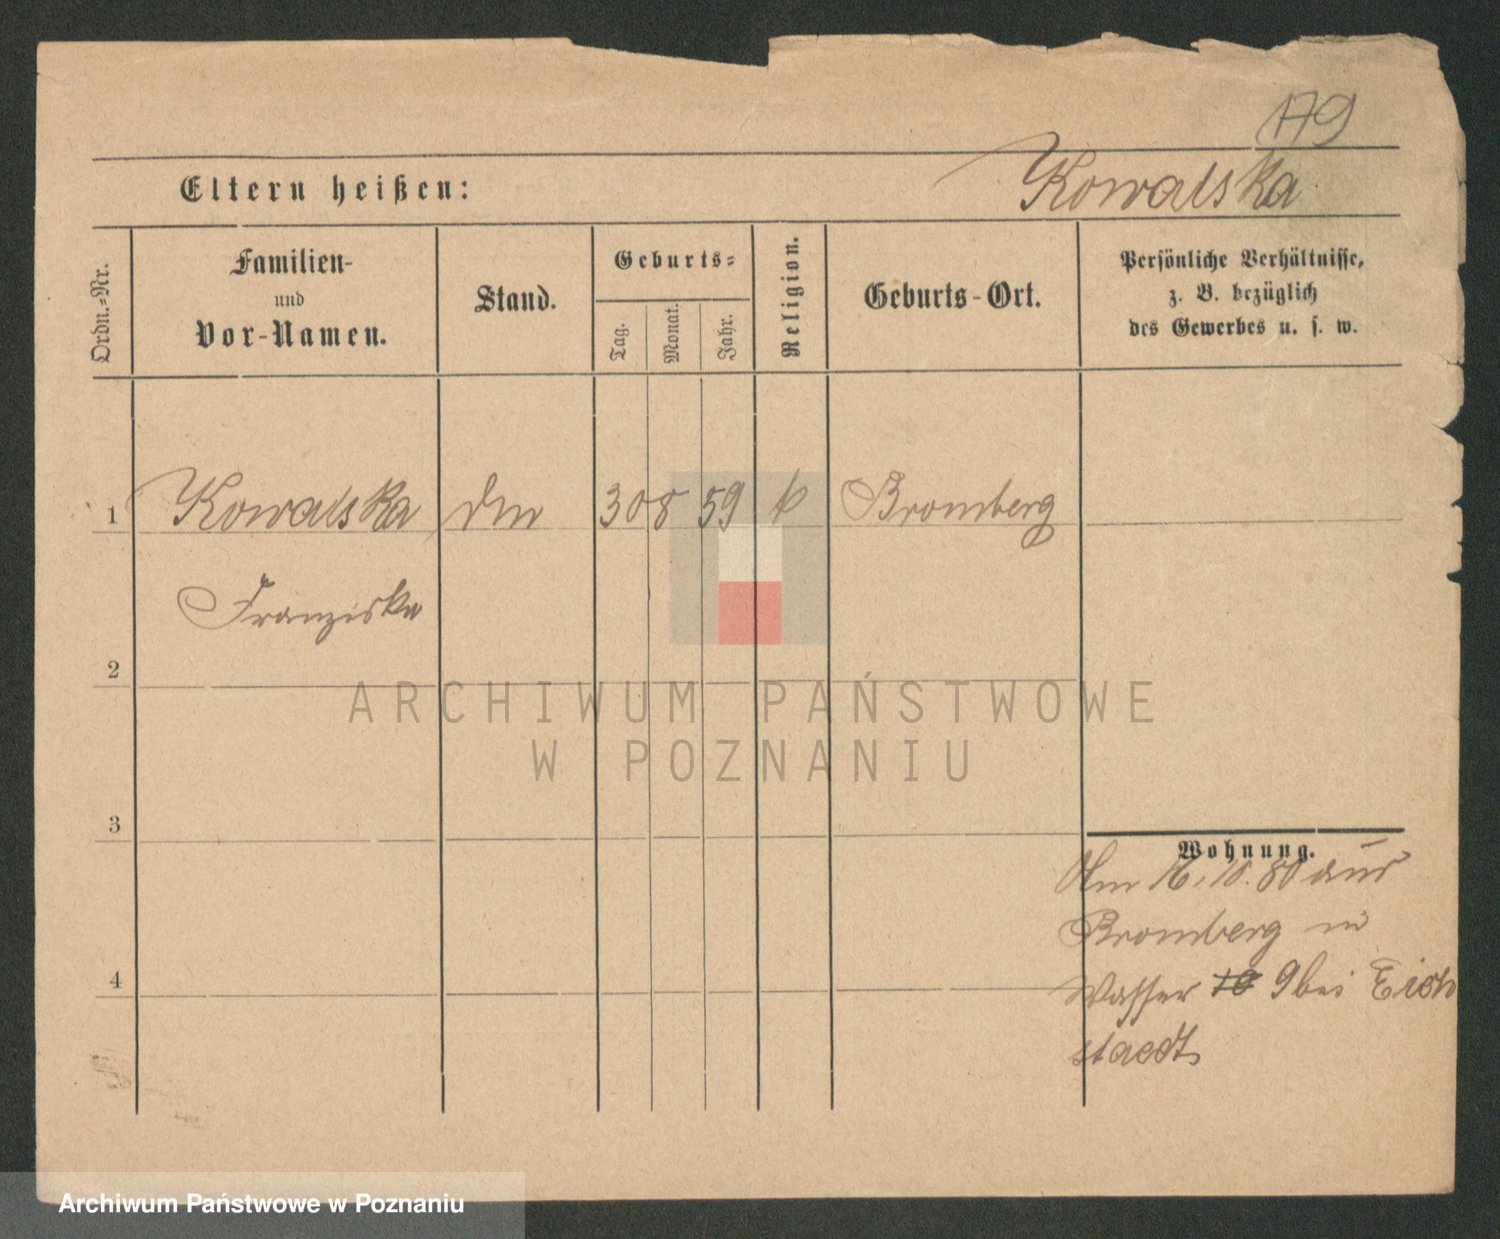 179
Eltern heißen:
Kowalska
Ordn.=Nr.
Familien-
und
Vor-Namen.
Stand.
Geburts=
Tag.
Monat.
Jahr.
Religion.
Geburts-Ort.
Persönliche Verhältnisse,
z. B. bezüglich
des Gewerbes u. s. w.
1 Kowalska 30 8 59 k Bromberg
Franziska
2
3
4
Wohnung.
Am 16.10.80 aus
Bromberg in
Wasser 9 bei Eich
staedt
ARCHIWUM PAŃSTWOWE
W POZNANIU
Archiwum Państwowe w Poznaniu